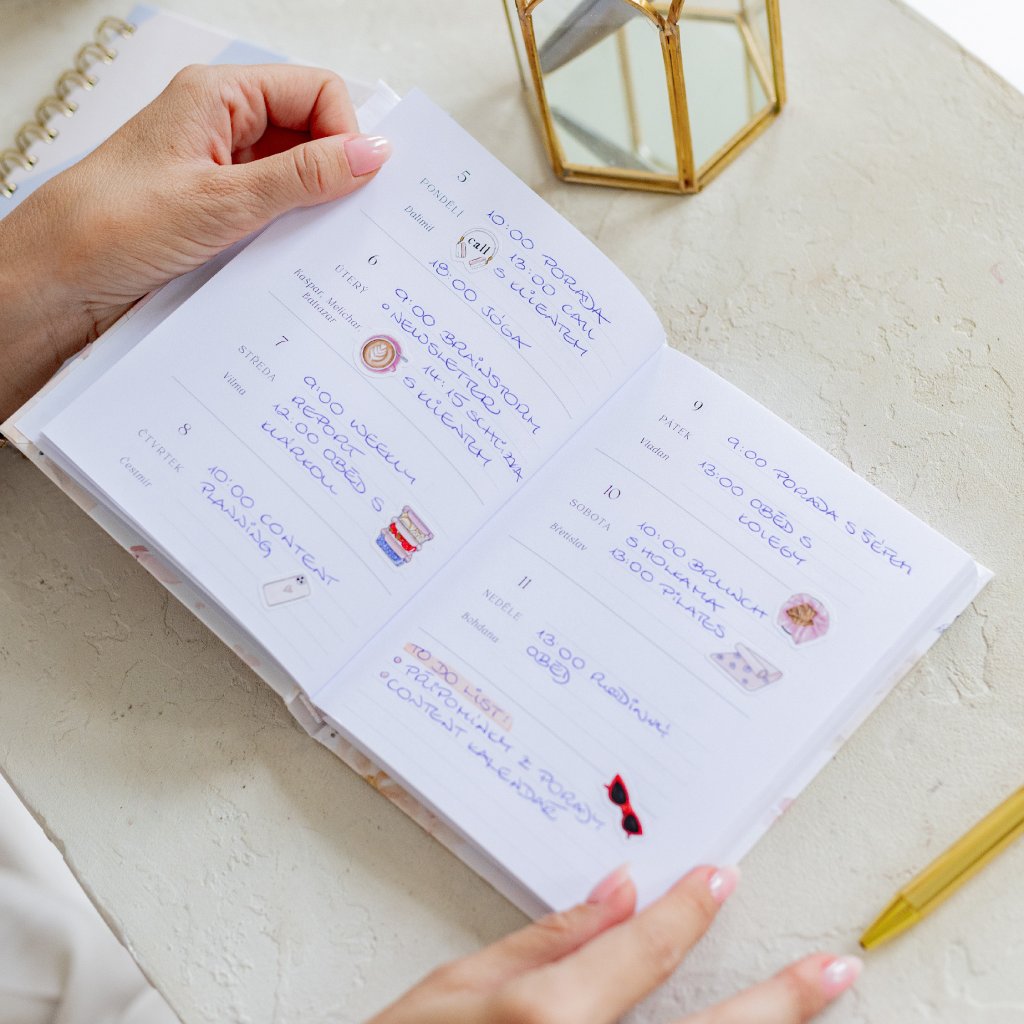 5
PONDĚLÍ
Dalimil
10:00 PORADA
call
13:00 CALL
S KLIENTEM
18:00 JÓGA
6
ÚTERÝ
Kašpar, Melichar,
Baltazar
9:00 BRAINSTORM
• NEWSLETTERŮ
14:15 SCHŮZKA
S KLIENTEM
7
STŘEDA
Vilma
9:00 WEEKLY
REPORT
12:00 OBĚD S
KLÁRKOU
8
ČTVRTEK
Čestmír
10:00 CONTENT
PLANNING
9
PÁTEK
Vladan
9:00 PORADA S ŠÉFEM
13:00 OBĚD S
KOLEGY
10
SOBOTA
Břetislav
10:00 BRUNCH
S HOLKAMA
13:00 PILATES
11
NEDĚLE
Bohdana
13:00 RODINNÝ
OBĚD
TO DO LIST!
• PŘIPOMÍNKY Z PORADY
• CONTENT KALENDÁŘ